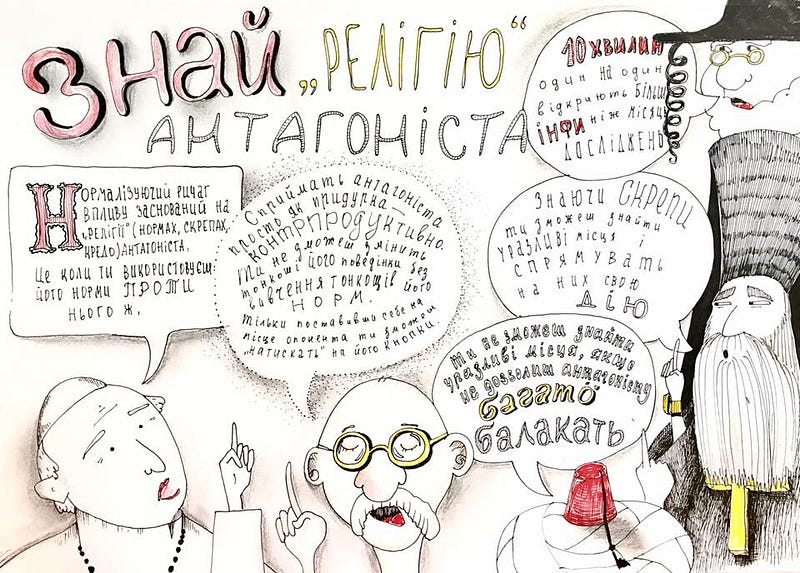 ЗНАЙ „РЕЛІГІЮ“
АНТАГОНІСТА
10 ХВИЛИН
ОДИН НА ОДИН
ВІДКРИЮТЬ БІЛЬШ
ІНФИ НІЖ МІСЯЦІ
ДОСЛІДЖЕНЬ
НОРМАЛІЗУЮЧИЙ РИЧАГ
ВПЛИВУ ЗАСНОВАНИЙ НА
„РЕЛІГІЇ“ (НОРМАХ, СКРЕПАХ,
КРЕДО) АНТАГОНІСТА.
ЦЕ КОЛИ ТИ ВИКОРИСТОВУЄШ
ЙОГО НОРМИ ПРОТИ
НЬОГО Ж.
СПРИЙМАТЬ АНТАГОНІСТА
ПРОСТО ЯК ПРИДУРКА —
КОНТРПРОДУКТИВНО.
ТИ НЕ ЗМОЖЕШ ЗМІНИТЬ
ТОНКОЩІ ЙОГО ПОВЕДІНКИ БЕЗ
ВИВЧЕННЯ ТОНКОЩІВ ЙОГО
НОРМ.
ТІЛЬКИ ПОСТАВИВШИ СЕБЕ НА
МІСЦЕ ОПОНЕНТА ТИ ЗМОЖЕШ
„НАТИСКАТЬ“ НА ЙОГО КНОПКИ.
ЗНАЮЧИ СКРЕПИ
ТИ ЗМОЖЕШ ЗНАЙТИ
УРАЗЛИВІ МІСЦЯ І
СПРЯМУВАТЬ
НА НИХ СВОЮ
ДІЮ
ТИ НЕ ЗМОЖЕШ ЗНАЙТИ
УРАЗЛИВІ МІСЦЯ, ЯКЩО
НЕ ДОЗВОЛИШ АНТАГОНІСТУ
БАГАТО
БАЛАКАТЬ